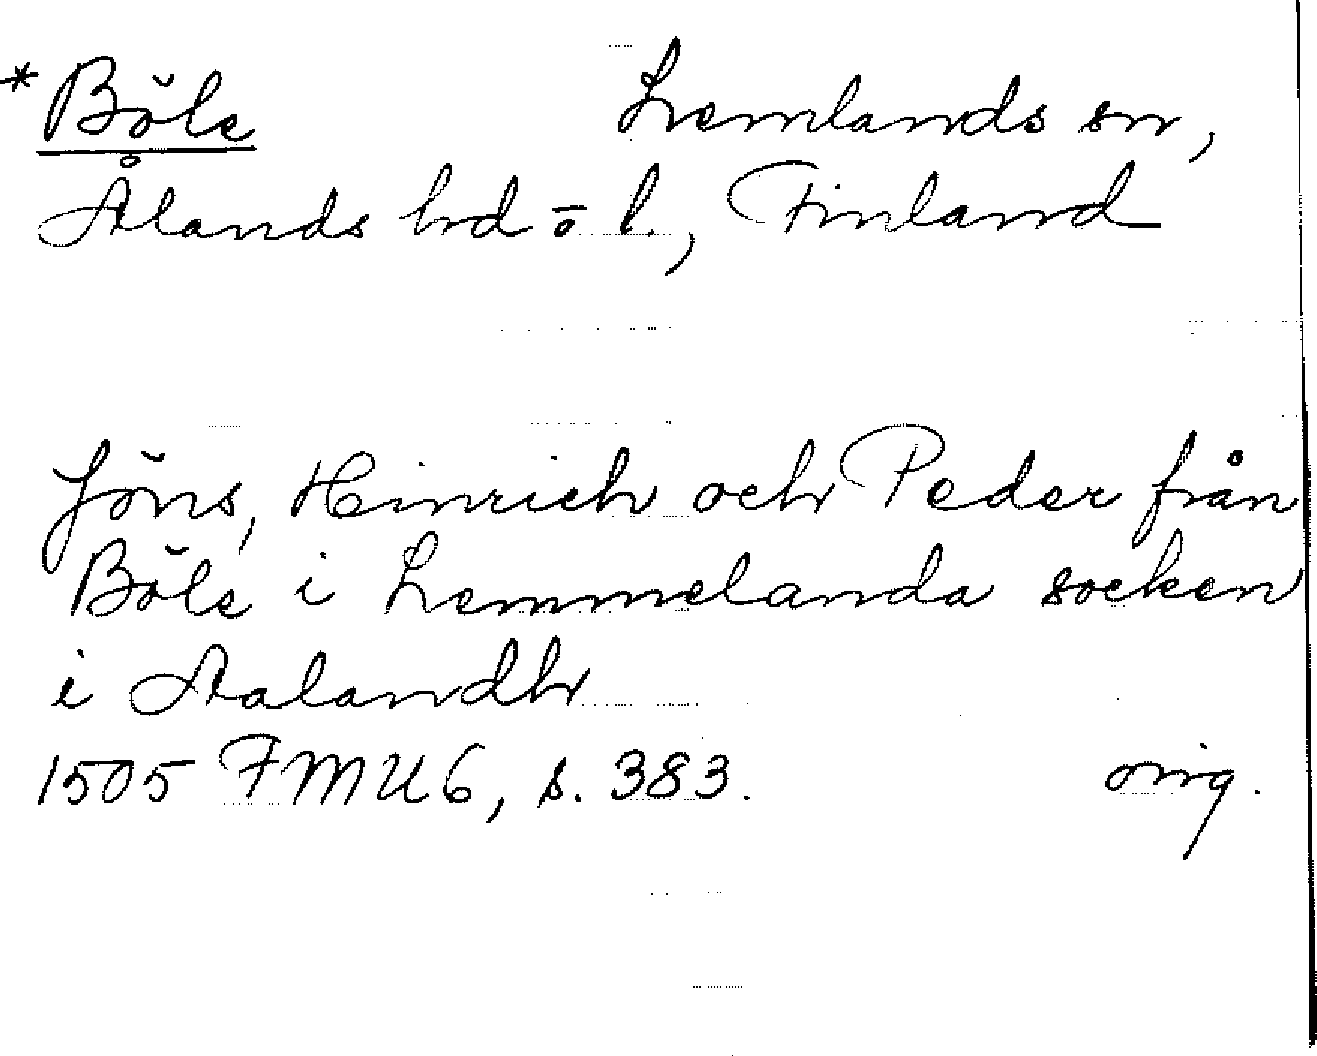 *Böle Lemlands sn,
Ålands hd o l., Finland
Jöns, Hinrich och Peder från
Böle i Lemmelanda socken
i Aalandh
1505 FMU 6, s. 383. orig.